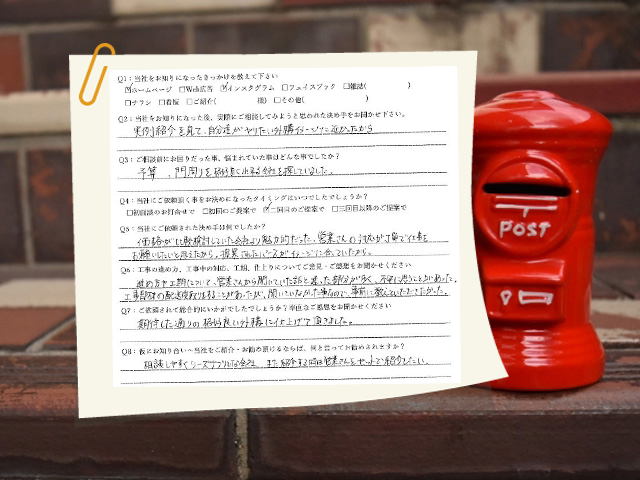 Q1：当社をお知りになったきっかけを教えて下さい
☑ホームページ □Web広告 ☑インスタグラム □フェイスブック □雑誌( )
□チラシ □看板 □ご紹介( 様) □その他( )
Q2：当社をお知りになった後、実際にご相談してみようと思われた決め手をお聞かせ下さい。
実例紹介を見て、自分達がやりたい外構イメージに近かったから
Q3：ご相談前にお困りだった事、悩まれていた事はどんな事でしたか？
予算、門周りを格好良く出来る会社を探していました。
Q4：当社にご依頼頂く事をお決めになったタイミングはいつでしたでしょうか？
□初回面談のお打合せで □初回のご提案で ☑二回目のご提案で □三回目以降のご提案で
Q5：当社にご依頼された決め手は何でしたか？
価格が比較検討していた会社より魅力的だった、営業さんの対応が丁寧で仕事を
お願いしたいと思えたから、提案されたパースがイメージに合っていたから。
Q6：工事の進め方、工事中の対応、工期、仕上りについてご意見・ご感想をお聞かせください
進め方や工期について、営業さんから聞いていた話と違った部分が多く、不安に思うことがあった。
工事部材の配送度取りに来ることがあったが、聞いていなかった事なので、事前に教えていただきたかった。
Q7：ご依頼されて総合的にいかがでしたでしょうか？率直なご感想をお聞かせください
期待した通りの格好良い外構に仕上げて頂きました。
Q8：仮にお知り合いへ当社をご紹介・お勧め頂けるならば、何と言ってお勧めされますか？
相談しやすくリーズナブルな会社、また紹介する時は営業さんとセットで紹介したい。
POST